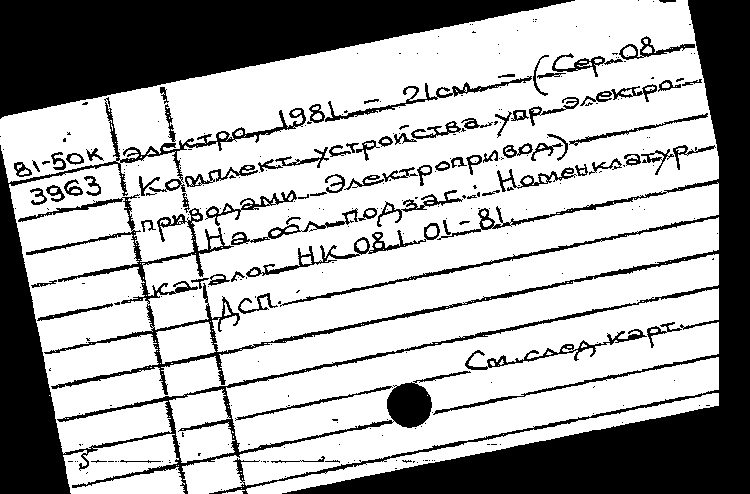 81-50К электро, 1981. – 21см. – (Сер 08
3963 Комплект. устройства упр. электро-
приводами. Электропривод.)
На обл. подзаг.: Номенклатур.
каталог НК 08.1.01-81.
ДСП.
См. след. карт.